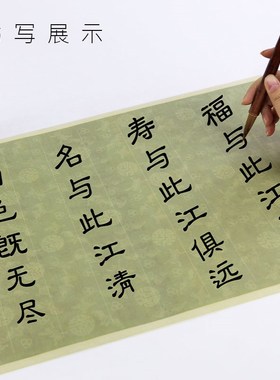 写展示
福与此江
寿与此江俱远
名与此江清
色既无尽